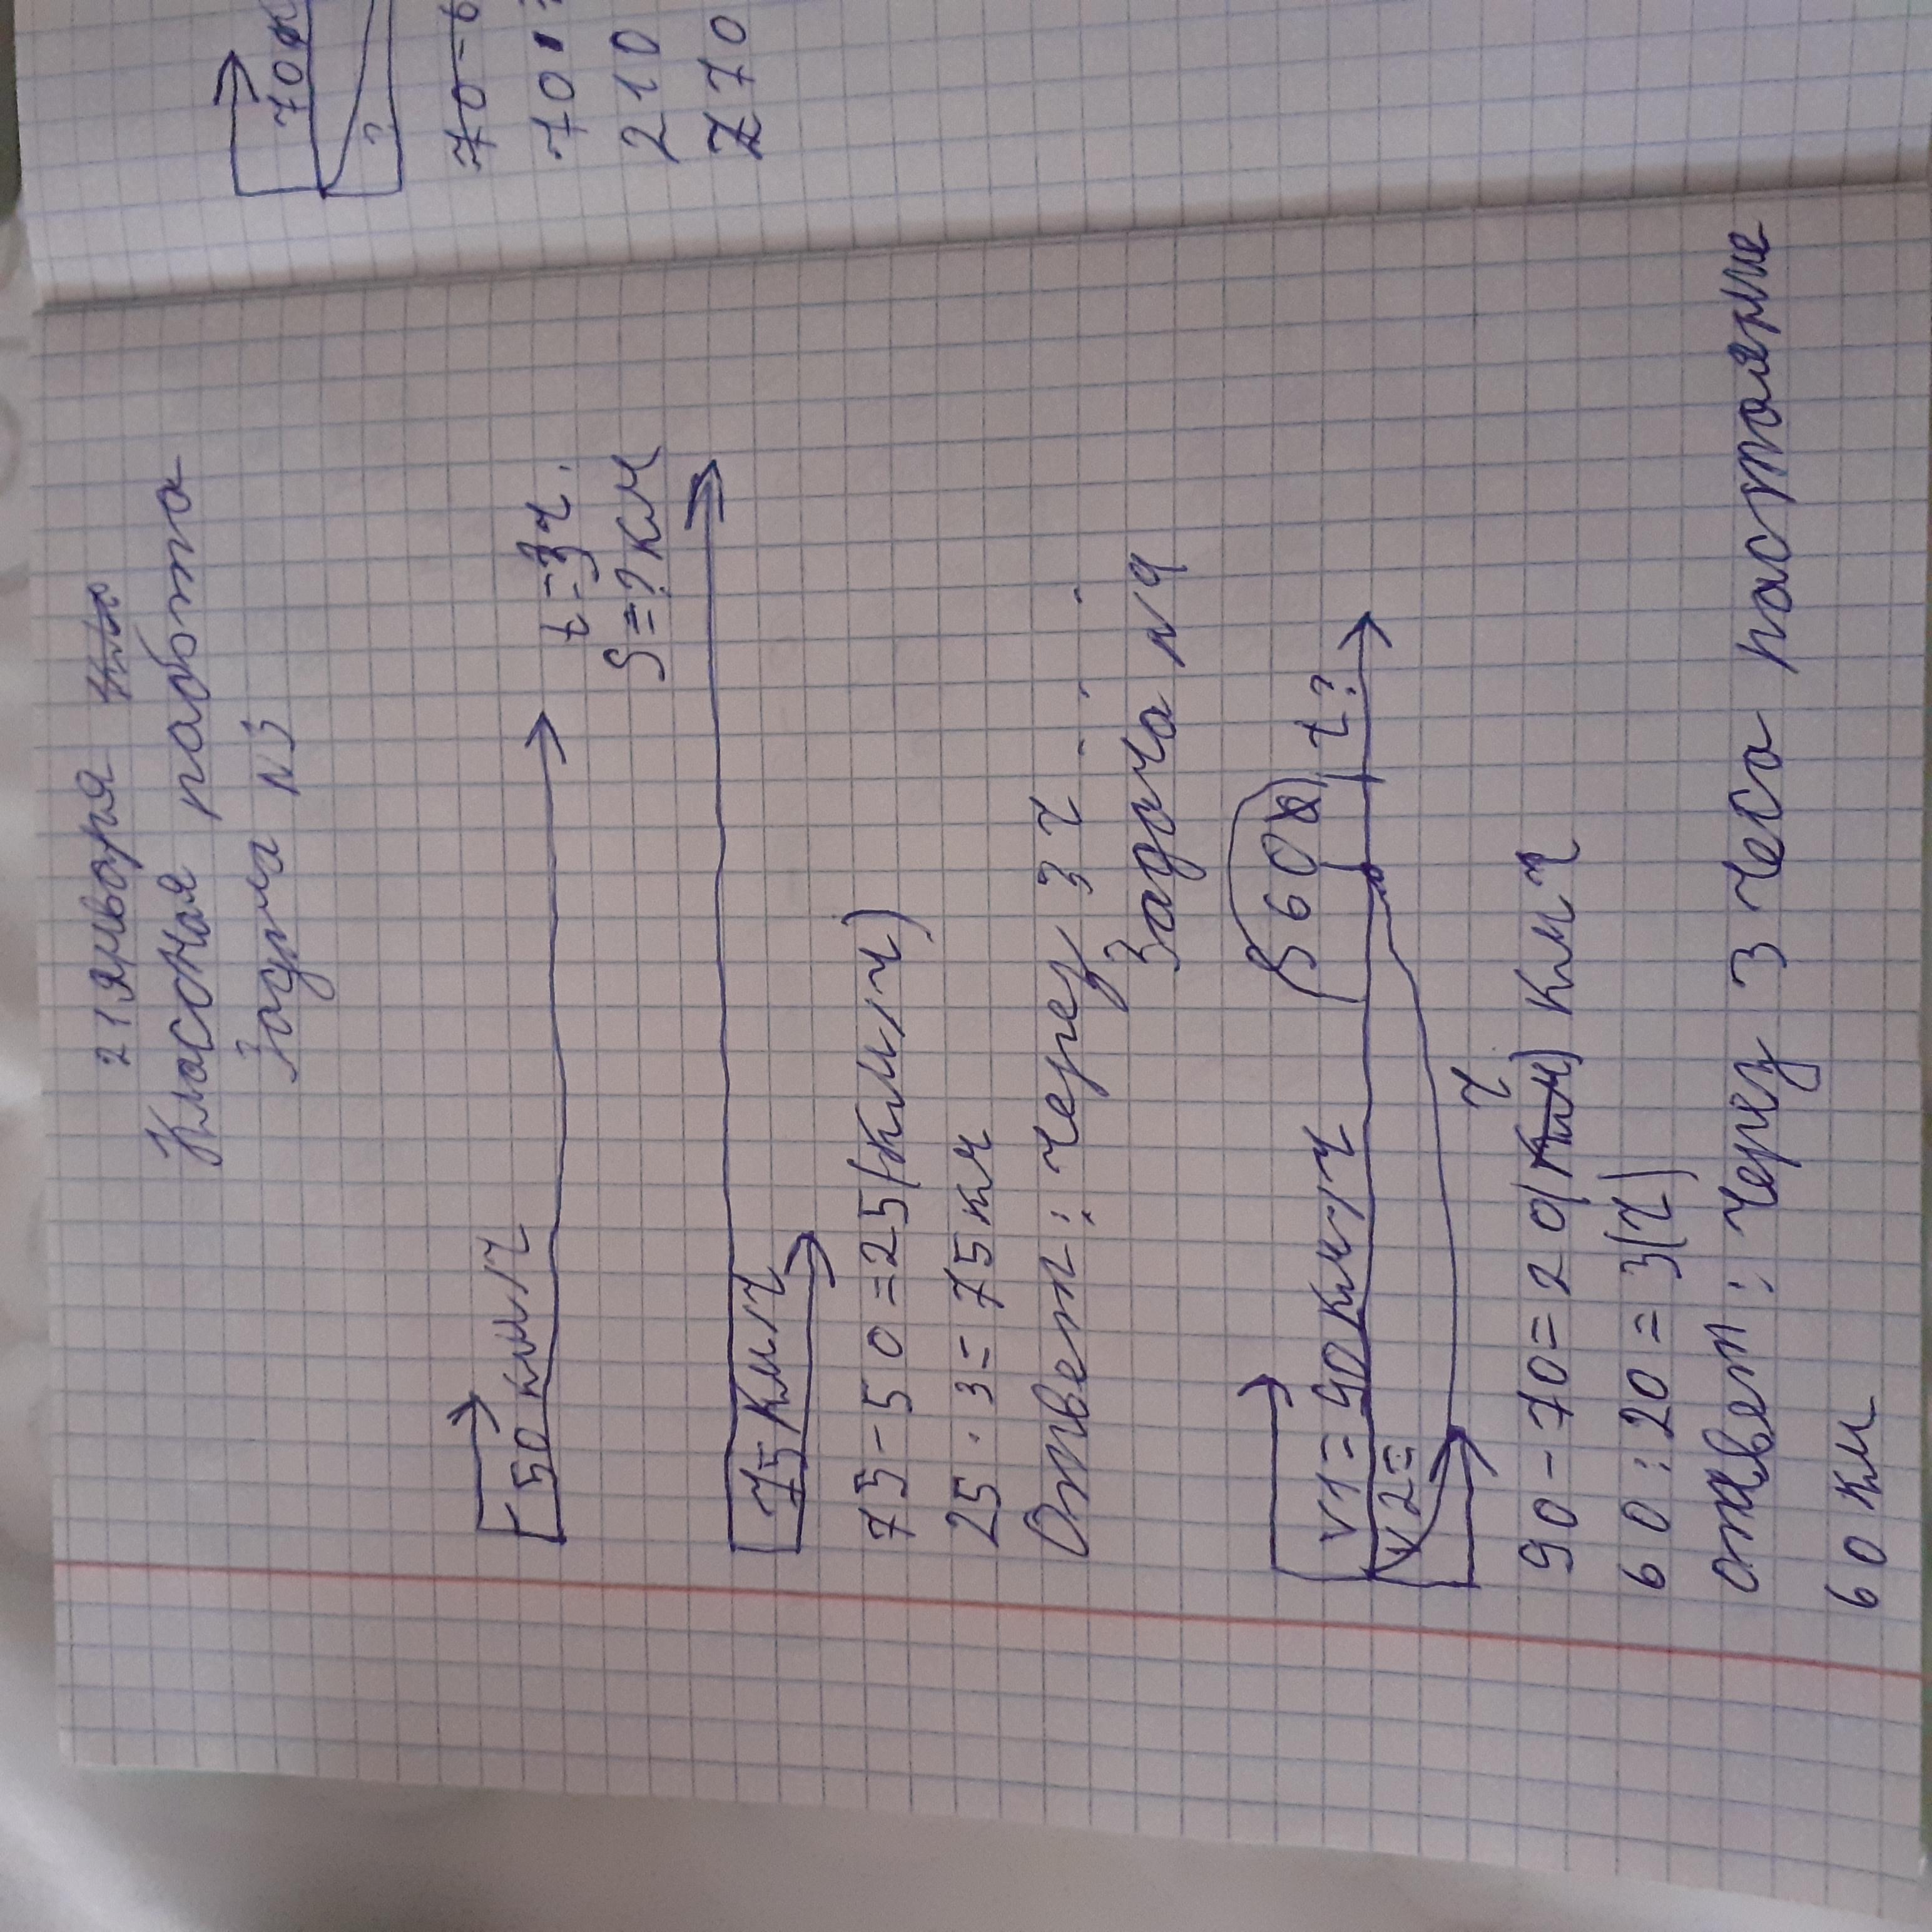 21 января
Класоная работа
Задача N3
50 км/ч
t=3ч.
S=? км
75 км/ч
75-50=25(км/ч)
25·3=75км
Ответ: через 3ч
Задача N4
S 60
t?
V1=90км/ч
V2=
ч
90-70=20(км) кмч
60:20=3(ч)
ответ: через 3 чеса растояние
60 км
70к
70-6
70
210
270